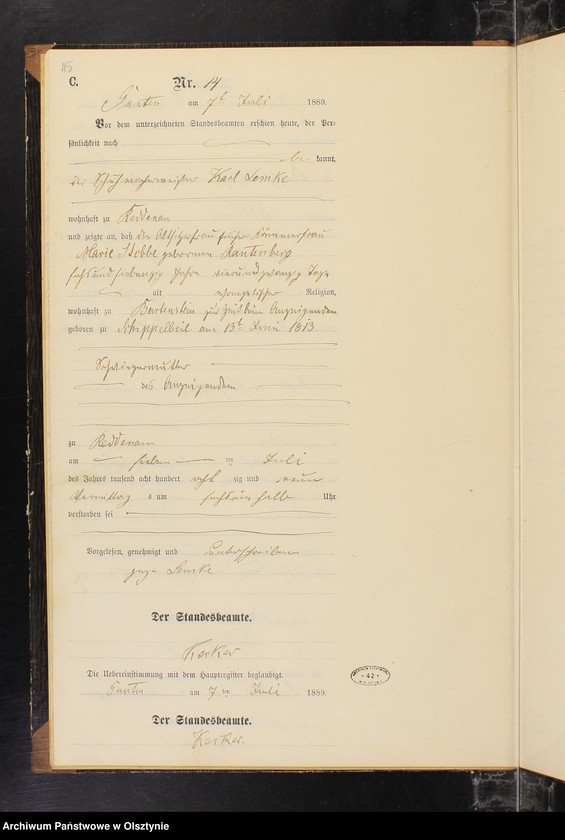 115
C.
Nr. 14
am 7t Juli 1889.
Vor dem unterzeichneten Standesbeamten erschien heute, der Per-
sönlichkeit nach
be kannt,
der Schuhmachermeister Karl Lemke
wohnhaft zu Reddenau
und zeigte an, daß die Altsitzerfrau früher Kämmererfrau
Marie Stobbe geborenen Rautenberg
sechsundsiebenzig Jahre vierundzwanzig Tage
alt evangelischer Religion,
wohnhaft zu Bartenstein zur Zeit beim Anzeigenden
geboren zu Schippelbeil am 13t Juni 1813
Schwiegermutter
des Anzeigenden
zu Reddenau
am sieben ten Juli
des Jahrs tausend acht hundert acht zig und neun
Vormittag s um sechs ein halb Uhr
verstorben sei
Vorgelesen, genehmigt und unterschrieben
gez. Lemke
Der Standesbeamte.
Kerker
Die Uebereinstimmung mit dem Hauptregister beglaubigt.
am 7 ten Juli 1889.
Der Standesbeamte.
Kerker.
42
Archiwum Państwowe w Olsztynie